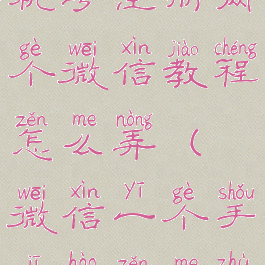 gè wēi xìn jiào chéng
个微信教程
zěn me nòng
怎么弄（
wēi xìn yī gè shǒu
微信一个手
jī hào zěn me zhù